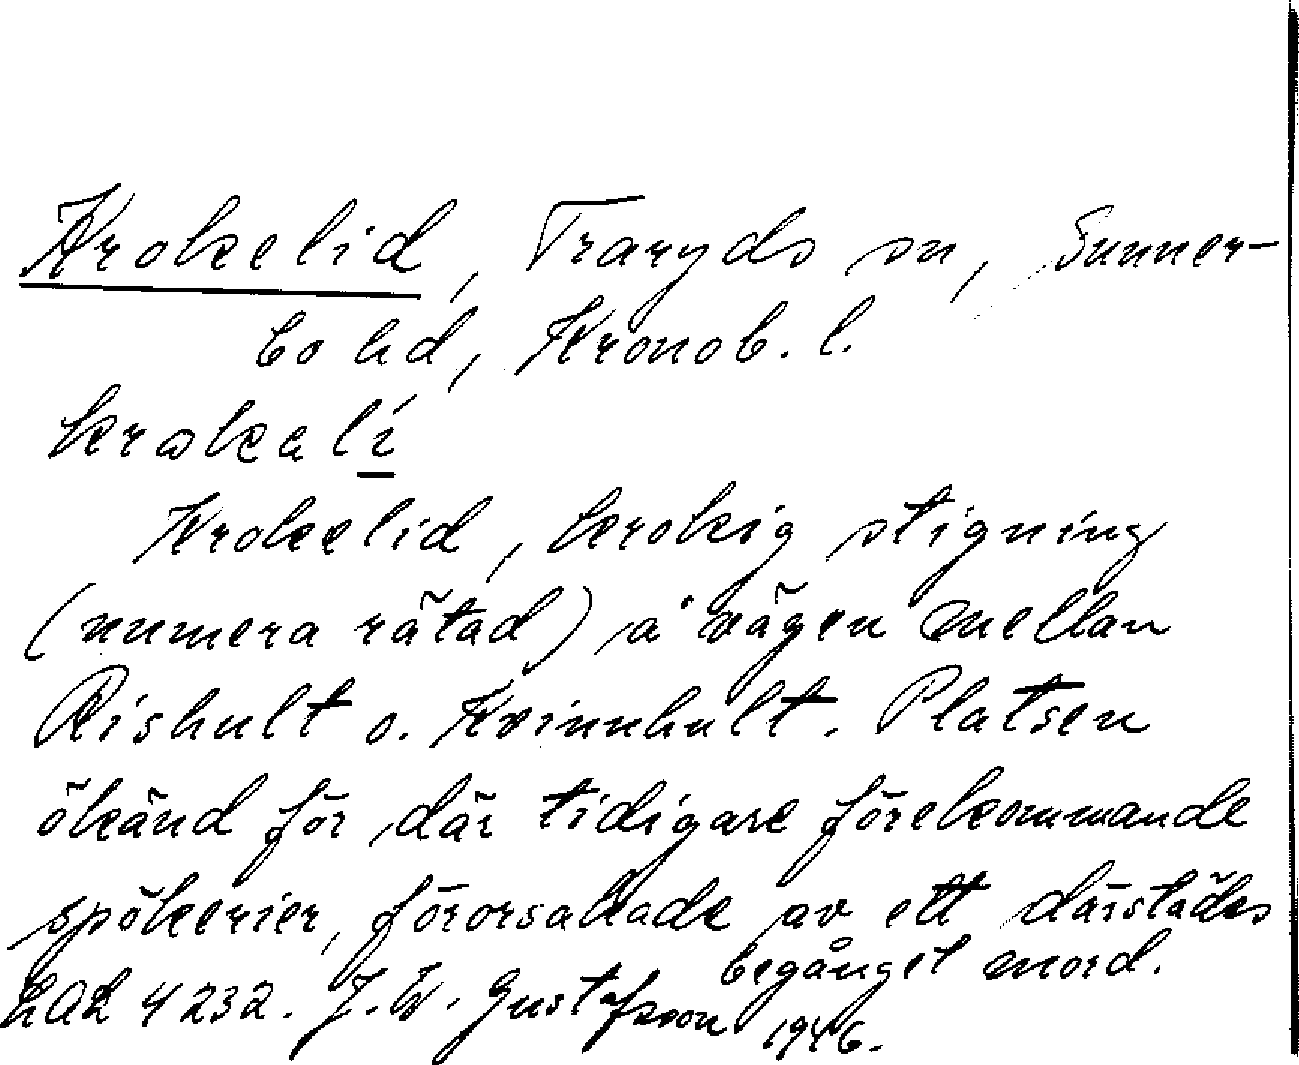 Krokelid, Traryds sn, Sunner-
bo hd, Kronob. l.
krokalí
Krokelid, krokig stigning
(numera rätad) å vägen mellan
Rishult o. Kvinnhult. Platsen
ökänd för där tidigare förekommande
spökerier, förorsakade av ett därstädes
begånget mord.
LAL 4232. J. W. Gustafsson 1946.